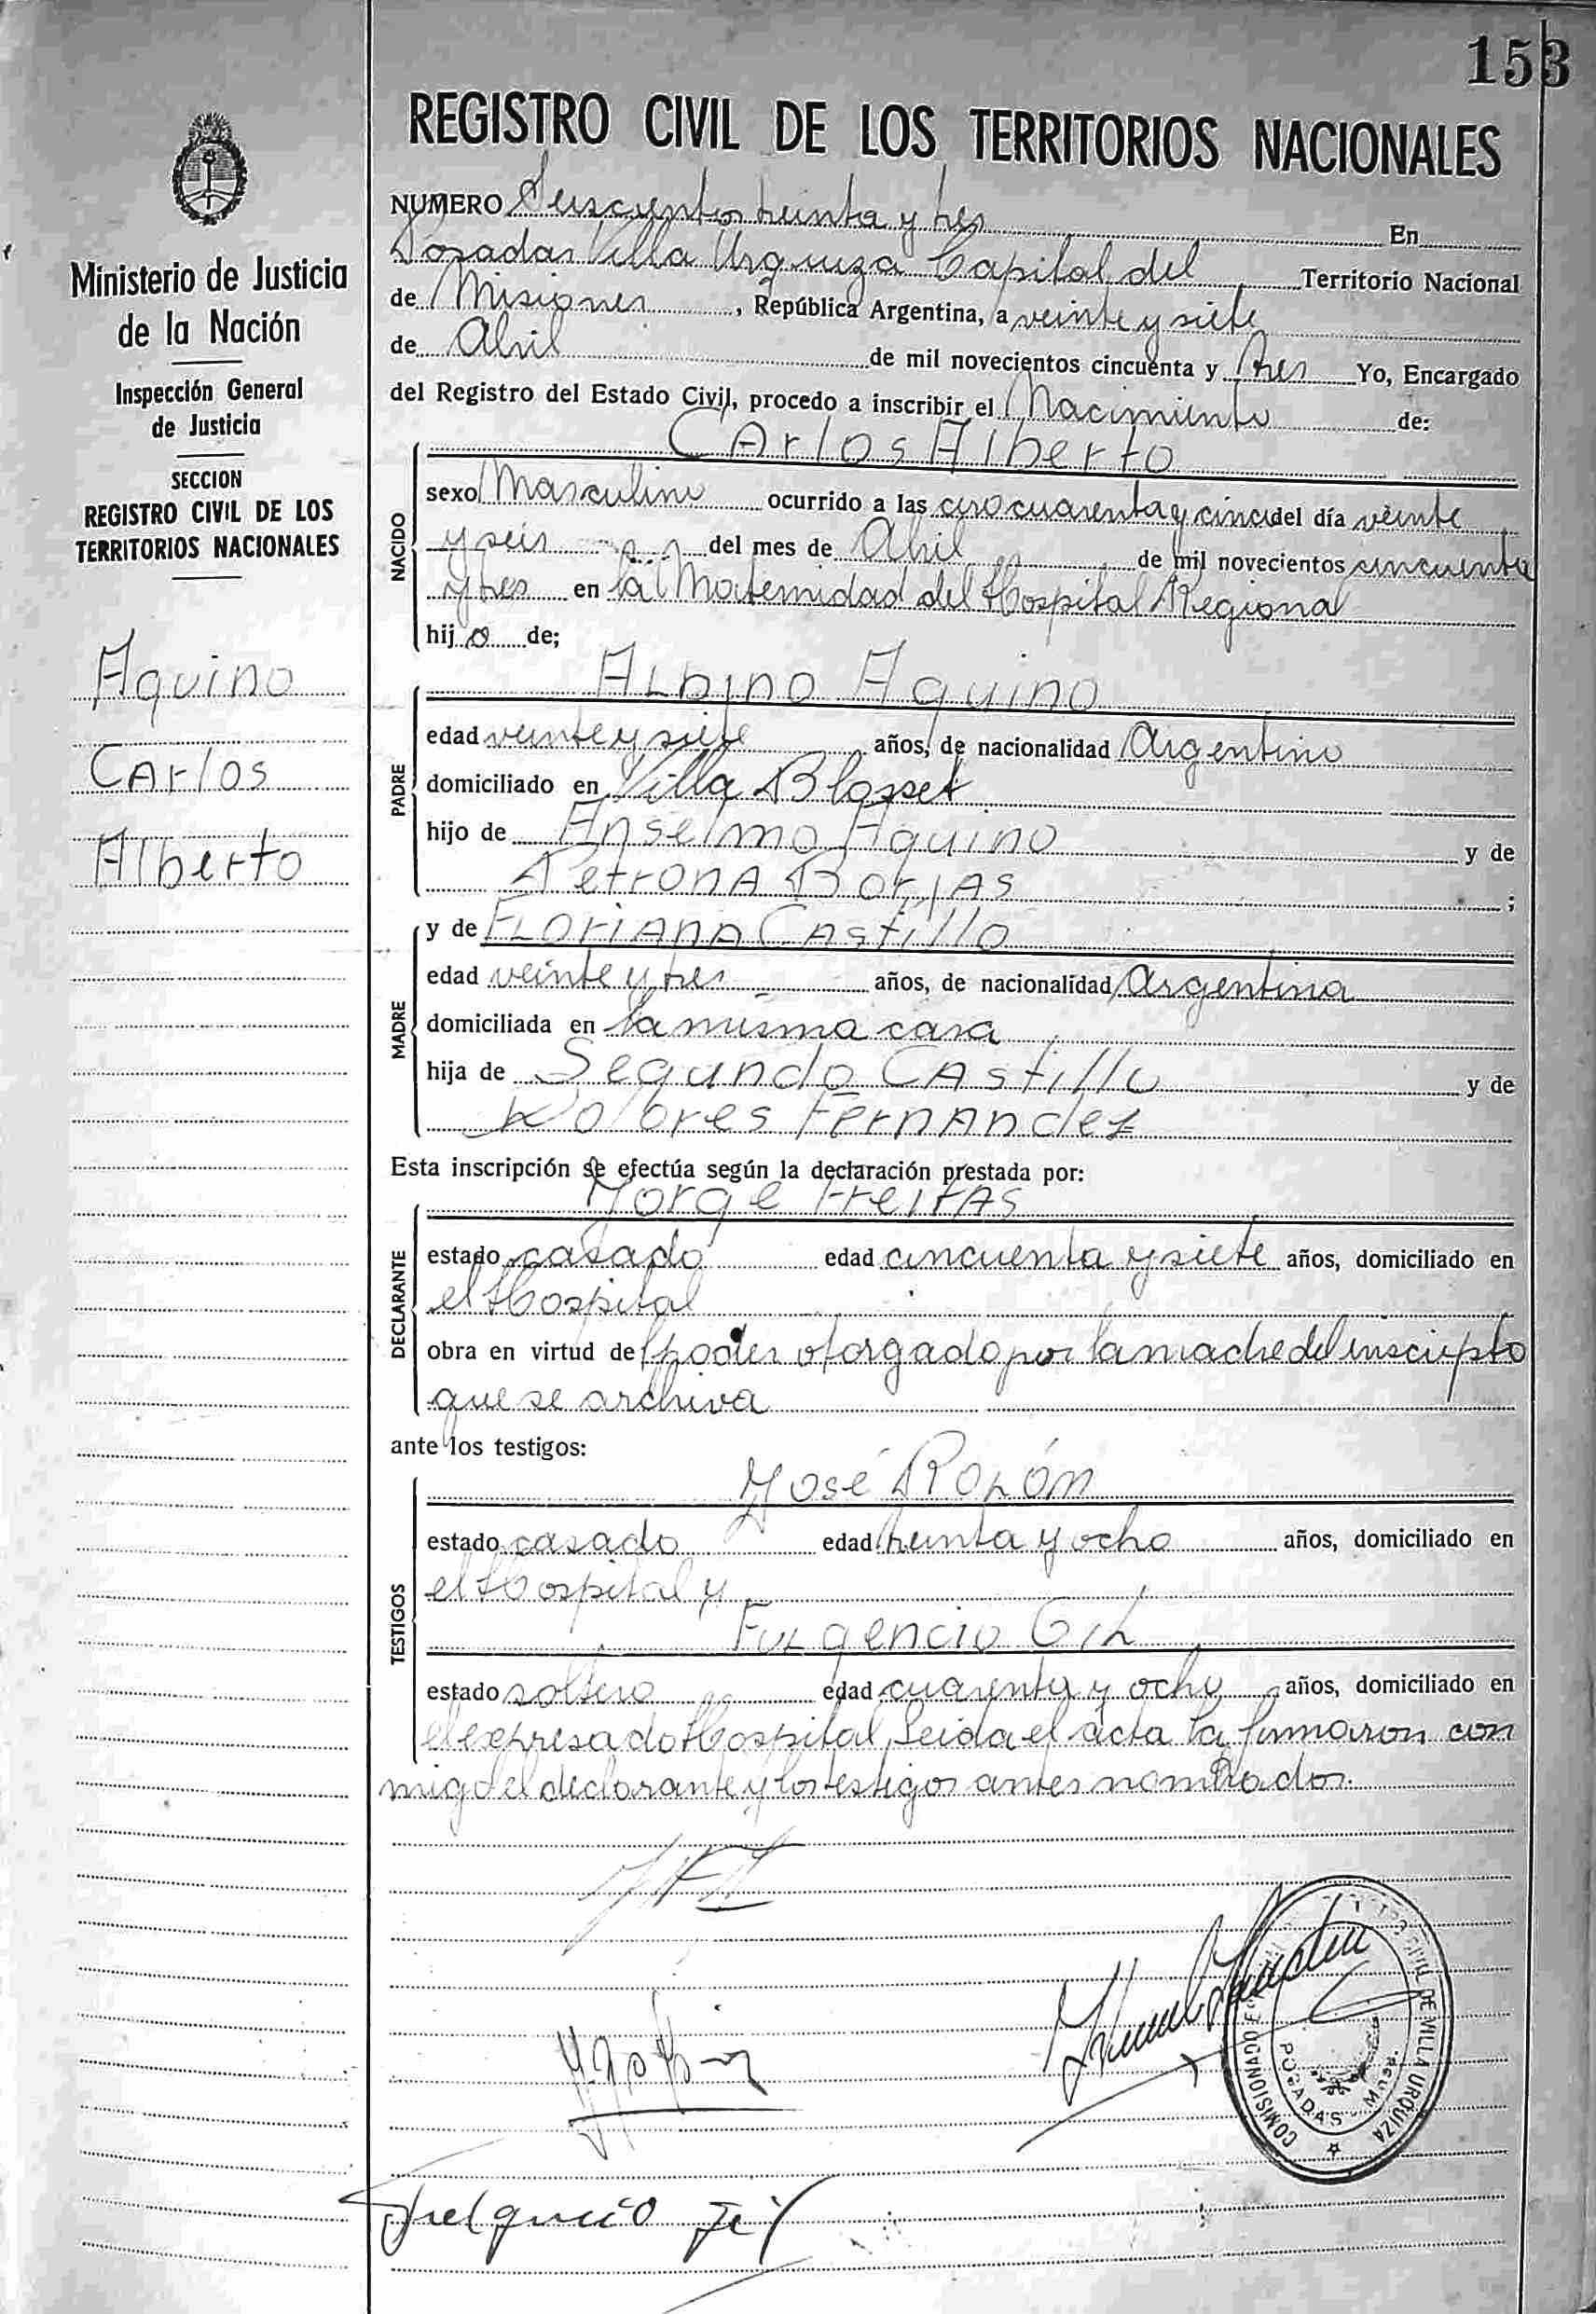 153
REGISTRO CIVIL DE LOS TERRITORIOS NACIONALES
Ministerio de Justicia
de la Nación
Inspección General
de Justicia
SECCION
REGISTRO CIVIL DE LOS
TERRITORIOS NACIONALES
Aquino
Carlos
Alberto
NUMERO Seiscientos treinta y tres En
Posadas Villa Urquiza Capital del Territorio Nacional
de Misiones, República Argentina, a veinte y siete
de Abril de mil novecientos cincuenta y tres Yo, Encargado
del Registro del Estado Civil, procedo a inscribir el Nacimiento de:
NACIDO
Carlos Alberto
sexo Masculino ocurrido a las cero cuarenta y cinco del día veinte
y seis del mes de Abril de mil novecientos cincuenta
y tres en la Maternidad del Hospital Regional
hijo de;
PADRE
Albino Aquino
edad veinte y siete años, de nacionalidad Argentino
domiciliado en Villa Blosset
hijo de Anselmo Aquino y de
Petrona Borjas ;
MADRE
y de Floriana Castillo
edad veinte y tres años, de nacionalidad Argentina
domiciliada en la misma casa
hija de Segundo Castillo y de
Dolores Fernandez
Esta inscripción se efectúa según la declaración prestada por:
DECLARANTE
Jorge Freitas
estado casado edad cincuenta y siete años, domiciliado en
el Hospital
obra en virtud del poder otorgado por la madre del inscripto
que se archiva
ante los testigos:
TESTIGOS
José Rolón
estado casado edad treinta y ocho años, domiciliado en
el Hospital y
Fulgencio Gil
estado soltero edad cuarenta y ocho años, domiciliado en
el expresado Hospital, Leida el acta la firmaron con
migo el declarante y los testigos antes nombrados.
DE VILLA URQUIZA
COMISIONADO
POSADAS
Fulgencio Gil